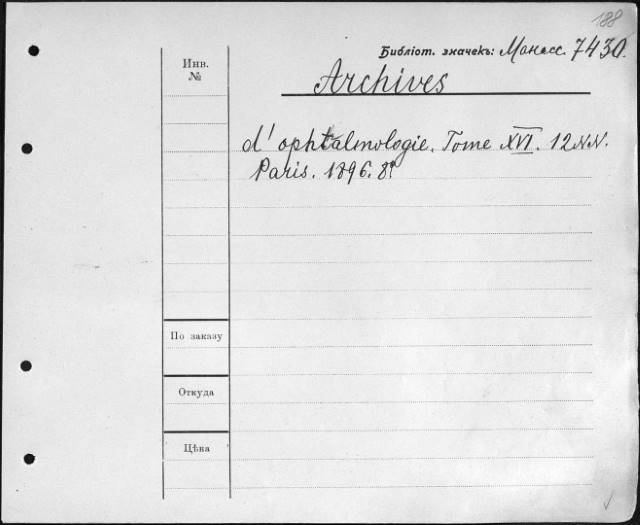 188
Библіот. значекъ: Манасс 7430.
Инв.
№
Archives
d'ophtalmologie. Tome XVI. 12 N.N.
Paris. 1896. 8º
По заказу
Откуда
Цѣна